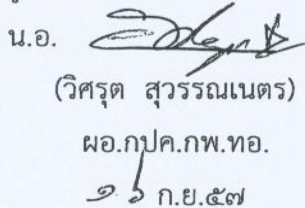 น.อ.
(วิศรุต สุวรรณเนตร)
ผอ.กปค.กพ.ทอ.
๑๖ ก.ย.๕๗